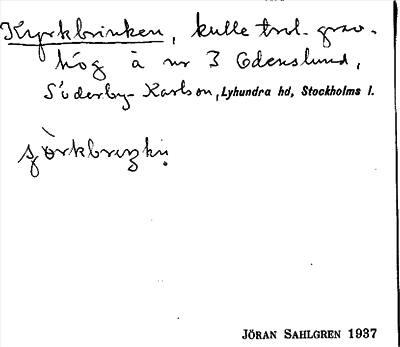 Kyrkbrinken, kulle trol. grav-
hög å nr 3 Odenslund,
Söderby-Karlson, Lyhundra hd, Stockholms l.
JÖRAN SAHLGREN 1937